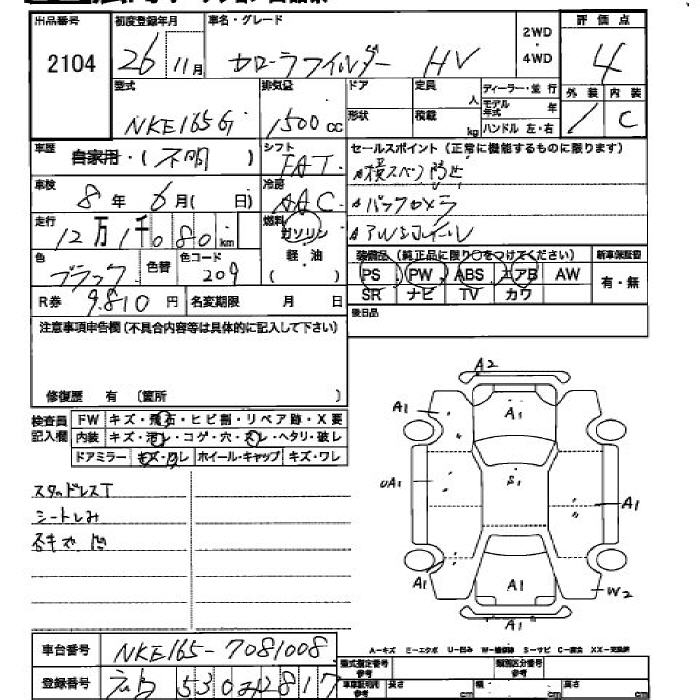 出品番号 初度登録年月 車名・グレード 2WD・4WD 評価点
2104 26 11月 カローラフィルダー HV 4
型式 排気量 ドア 定員 人 ディーラー・並行 外装 内装
NKE165G 1500cc 形状 積載 kg モデル年式 年 ハンドル 左・右 / C
車歴 自家用・(不明) シフト FAT セールスポイント(正常に機能するものに限ります)
車検 8年 6月( 日) 冷房 AAC
走行 12万1千080km 燃料 ガソリン 軽・油 ( )
バックカメラ
AWホイール
色 ブラック 色替 色コード 209
装備品(純正品に限り○をつけてください) 新車保証書
PS PW ABS エアB AW 有・無
SR ナビ TV カワ
R券 9,810円 名変期限 月 日 後日品
注意事項申告欄(不具合内容等は具体的に記入して下さい)
修復歴 有 (箇所 )
検査員記入欄 FW キズ・飛石・ヒビ割・リペア跡・X要
内装 キズ・汚レ・コゲ・穴・スレ・ヘタリ・破レ
ドアミラー キズ・ワレ ホイール・キャップ キズ・ワレ
スタッドレスT
シートしみ
A2
A1 A1
UA1 S1 A1
A1 A1 W2
A1
A-キズ E-エクボ U-凹み W-補修跡 S-サビ C-腐食 XX-交換済
車台番号 NKE165-7081008
型式指定番号 参考 類別区分番号 参考
登録番号 530 2817
長さ cm 幅 cm 高さ cm